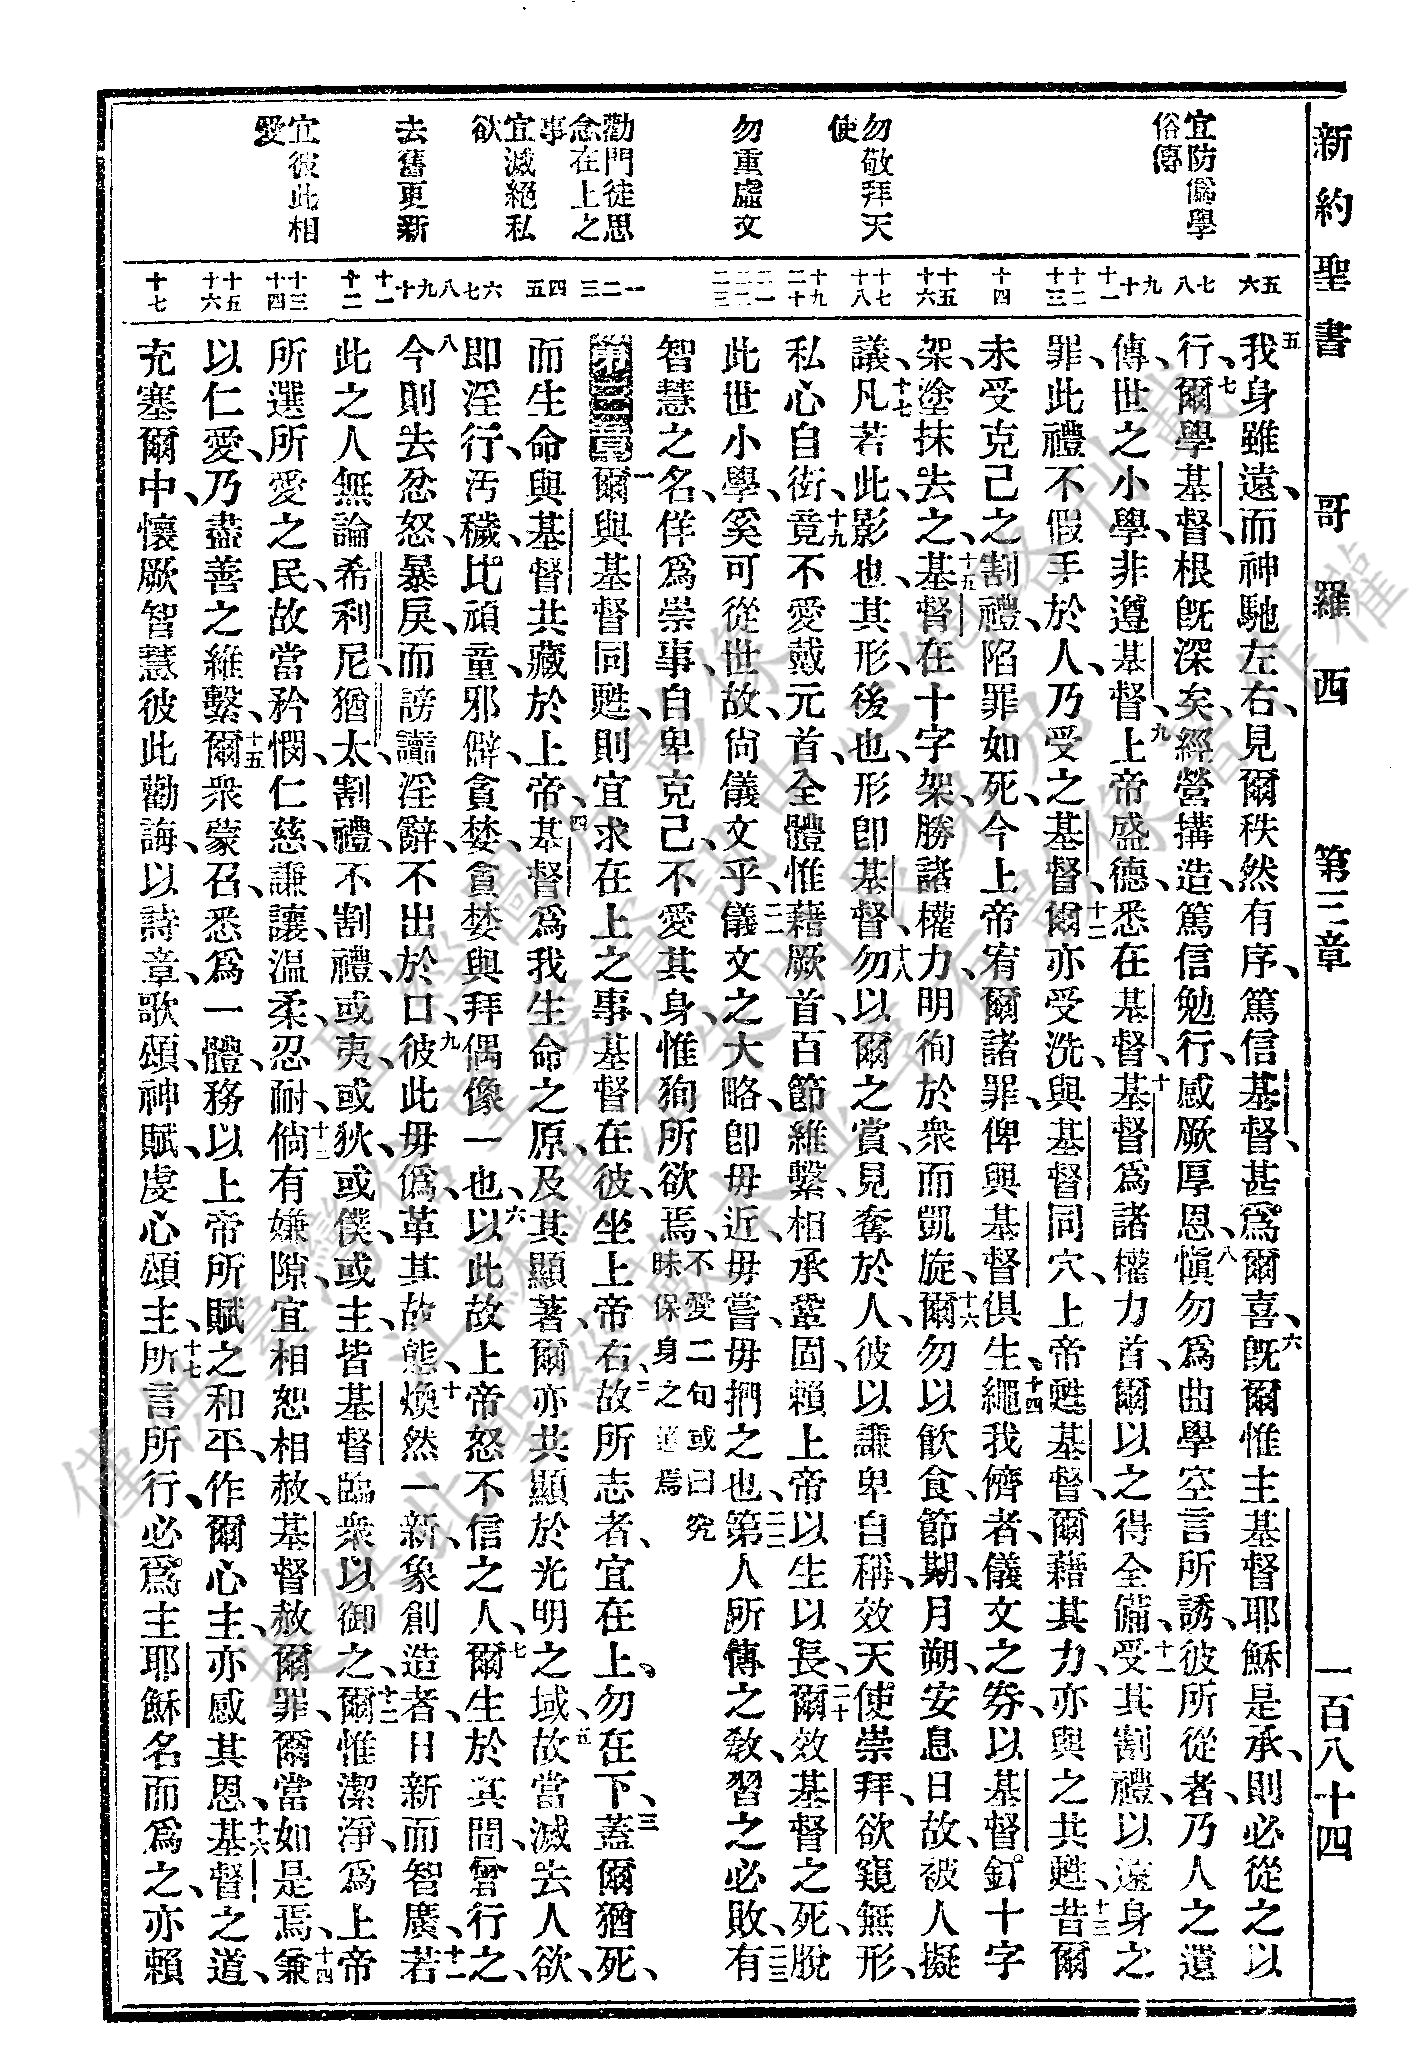 新約聖書 哥羅西 第三章 一百八十四
宜防僞學
俗傳
勿敬拜天
使
勿重虛文
勸門徒思
念在上之
事
宜滅絕私
欲
去舊更新
宜彼此相
愛
五我身雖遠、而神馳左右、見爾秩然有序、篤信基督、甚爲爾喜、六旣爾惟主基督耶穌是承、則必從之以
行、七爾學基督、根旣深矣、經營搆造、篤信勉行、感厥厚恩、八愼勿爲曲學空言所誘、彼所從者、乃人之遺
傳、世之小學、非遵基督、九上帝盛德、悉在基督、十基督爲諸權力首、爾以之得全備、十一受其割禮、以遠身之
罪、此禮不假手於人、乃受之基督、十二爾亦受洗、與基督同穴、上帝甦基督、爾藉其力、亦與之共甦、十三昔爾
未受克己之割禮、陷罪如死、今上帝宥爾諸罪、俾與基督俱生、十四繩我儕者、儀文之券、以基督釘十字
架、塗抹去之、十五基督在十字架、勝諸權力、明徇於衆而凱旋、十六爾勿以飮食、節期、月朔、安息日故、被人擬
議、十七凡若此、影也、其形、後也、形卽基督、十八勿以爾之賞、見奪於人、彼以謙卑自稱、效天使崇拜、欲窺無形、
私心自衒、十九竟不愛戴元首、全體惟藉厥首、百節維繫、相承鞏固、賴上帝以生以長、二十爾效基督之死、脫
此世小學、奚可從世故、尙儀文乎、二一儀文之大略、卽毋近、毋嘗、毋捫之也、二二第人所傳之敎、習之必敗、二三有
智慧之名、佯爲崇事、自卑克己、不愛其身、惟狥所欲焉、不愛二句或曰究昧保身之道焉
第三章 一爾與基督同甦、則宜求在上之事、基督在彼、坐上帝右、二故所志者、宜在上、勿在下、三蓋爾猶死、
而生命與基督共藏於上帝、四基督爲我生命之原、及其顯著、爾亦共顯於光明之域、五故當滅去人欲、
卽淫行、汚穢、比頑童、邪僻、貪婪、貪婪與拜偶像一也、六以此故上帝怒不信之人、七爾生於其間、嘗行之、
八今則去忿怒、暴戾、而謗讟淫辭、不出於口、九彼此毋僞、革其故態、十煥然一新、象創造者、日新而智廣、十一若
此之人、無論希利尼、猶太、割禮、不割禮、或夷、或狄、或僕、或主、皆基督臨衆以御之、十二爾惟潔淨、爲上帝
所選所愛之民、故當矜憫、仁慈、謙讓、温柔、忍耐、十三倘有嫌隙、宜相恕相赦、基督赦爾罪、爾當如是焉、十四兼
以仁愛、乃盡善之維繫、十五爾衆蒙召、悉爲一體、務以上帝所賦之和平、作爾心主、亦感其恩、十六基督之道、
充塞爾中、懷厥智慧、彼此勸誨、以詩章、歌頌、神賦、虔心頌主、十七所言所行、必爲主耶穌名而爲之、亦賴